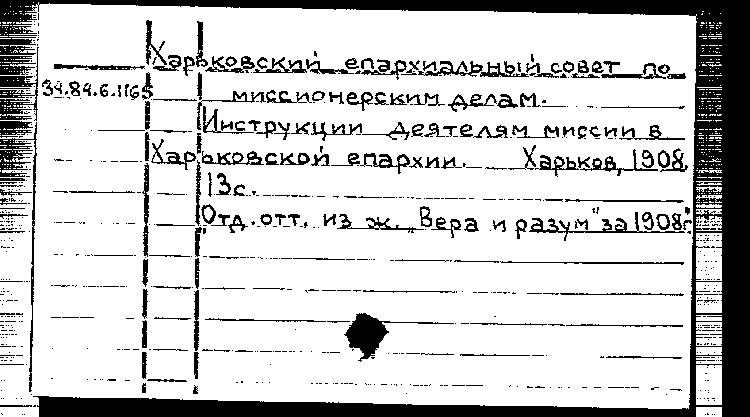 Харьковский епархиальный совет по
34.84.6.1165 миссионерским делам.
Инструкции деятелям миссии в
Харьковской епархии. Харьков, 1908.
13с.
"Отд. отт. из ж. „Вера и разум" за 1908г."